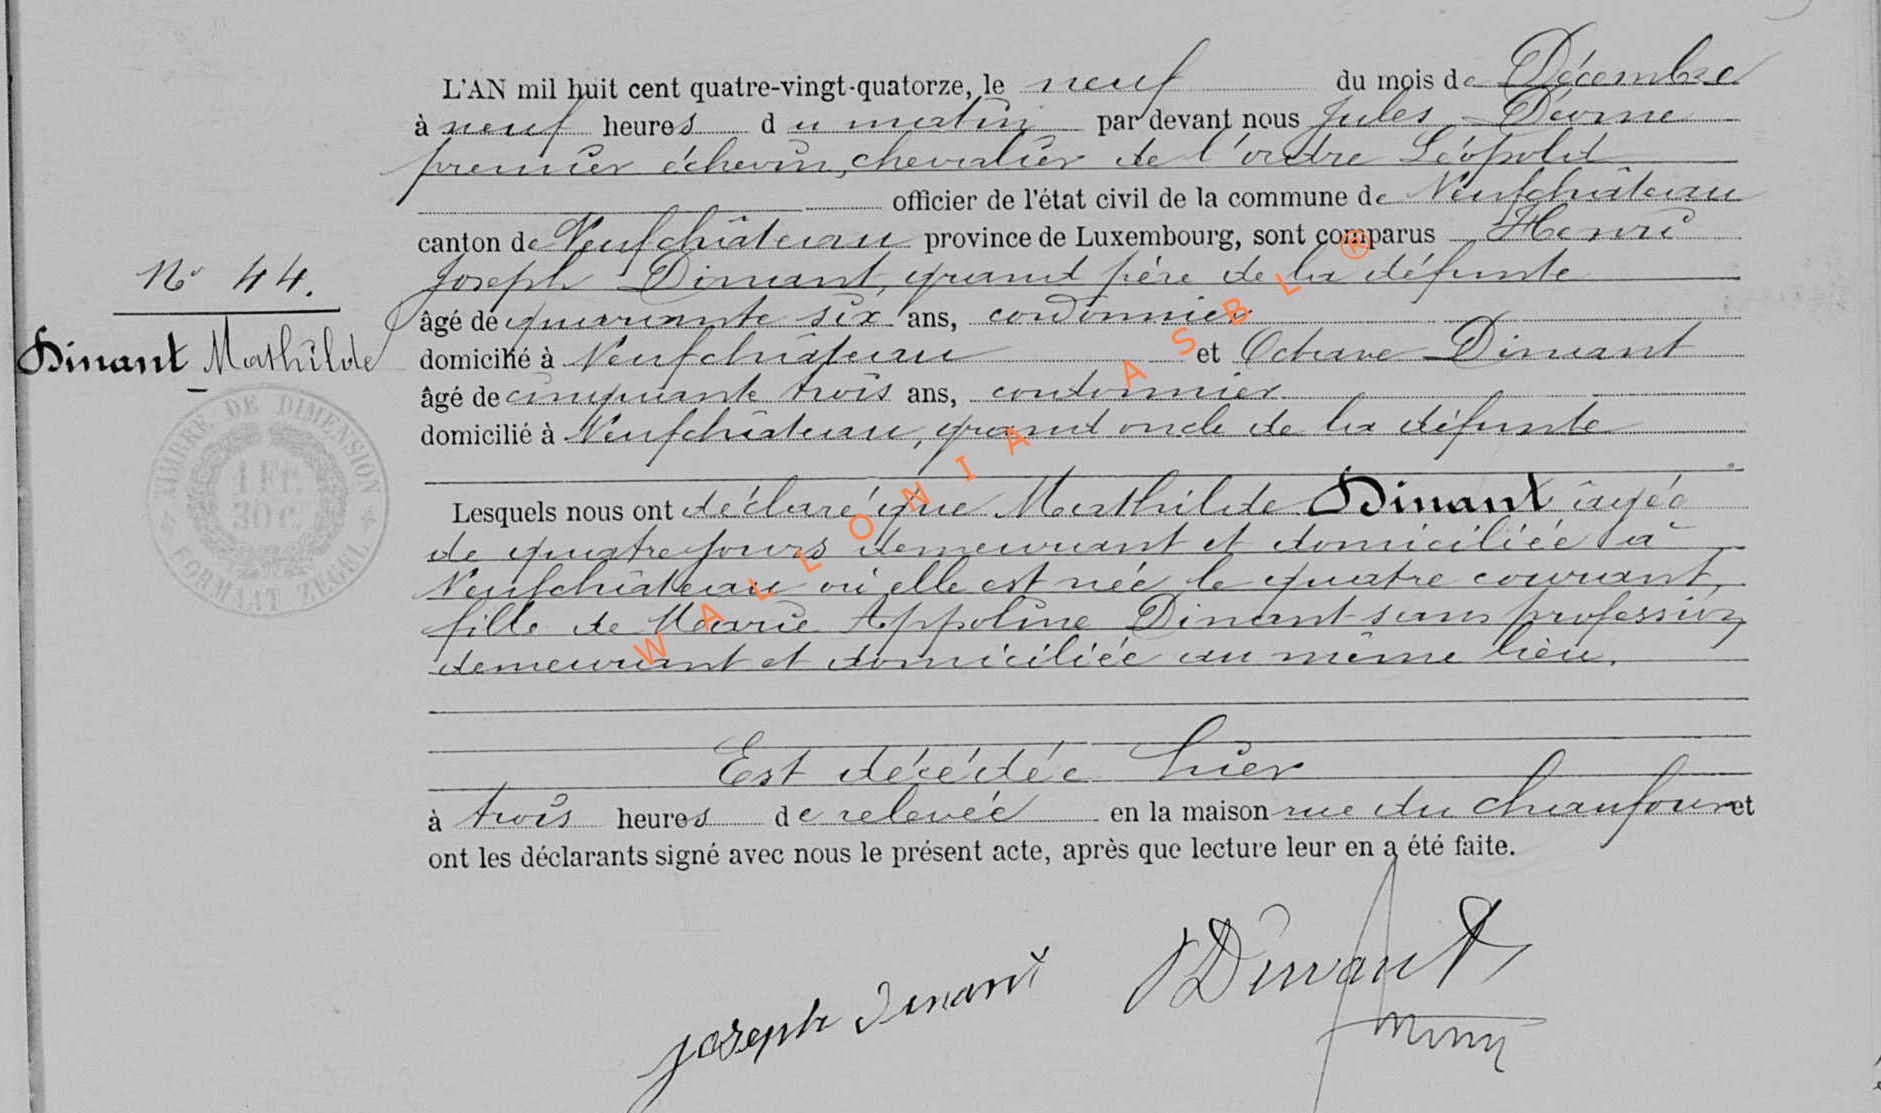 L'AN mil huit cent quatre-vingt-quatorze, le neuf du mois de Décembre
à neuf heures du matin par devant nous Jules
premier échevin, chevalier de l'ordre Léopold
officier de l'état civil de la commune de Neufchâteau
canton de Neufchâteau province de Luxembourg, sont comparus Henri
Joseph Dinant, grand père de la défunte
âgé de quarante six ans, cordonnier
domicilié à Neufchâteau et Octave Dinant
âgé de cinquante trois ans, cordonnier
domicilié à Neufchâteau, grand oncle de la défunte
Lesquels nous ont déclaré que Mathilde Dinant âgée
de quatre jours demeurant et domiciliée à
Neufchâteau où elle est née le quatre courant,
fille de Marie Appoline Dinant sans profession
demeurant et domiciliée au même lieu.
Est décédée hier
à trois heures de relevée en la maison rue du Chaufour et
ont les déclarants signé avec nous le présent acte, après que lecture leur en a été faite.
Joseph Dinant
O Dinant
No 44.
Dinant Mathilde
TIMBRE DE DIMENSION
1 Fr.
30 C.
FORMAAT ZEGEL
WALLONIA ASBL ®